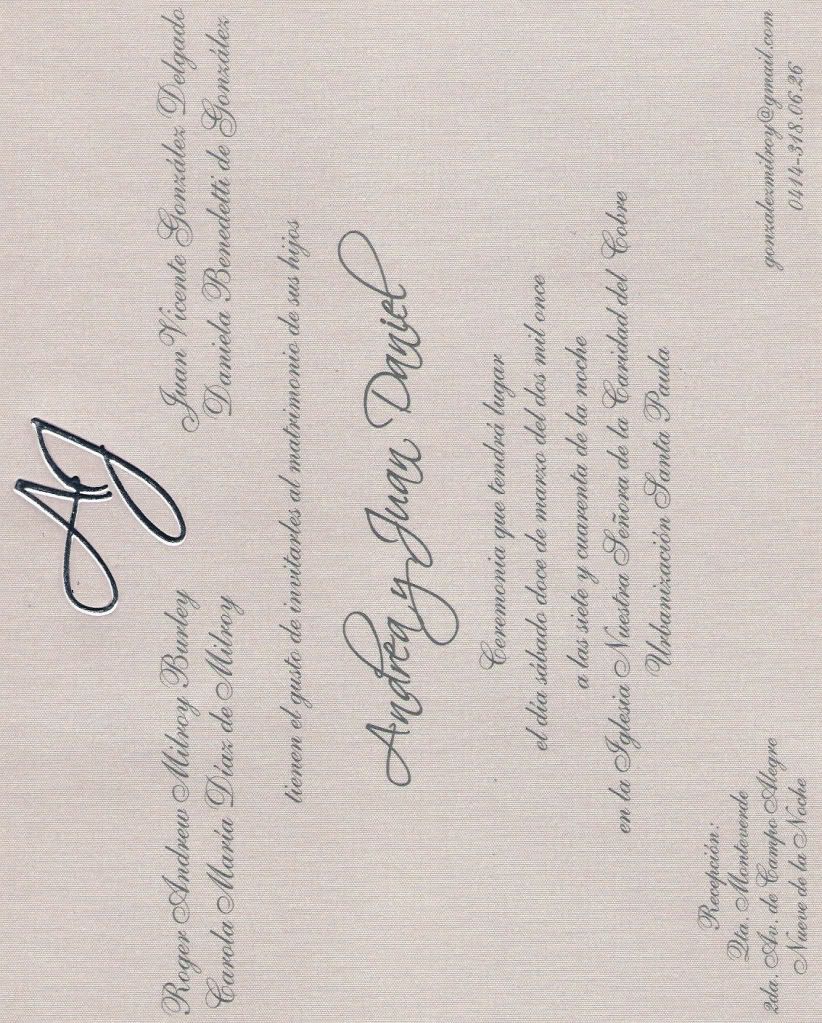 AJ
Roger Andrew Milroy Burley
Carola María Díaz de Milroy
Juan Vicente González Delgado
Daniela Benedetti de González
tienen el gusto de invitarles al matrimonio de sus hijos
Andrea y Juan Daniel
Ceremonia que tendrá lugar
el día sábado doce de marzo del dos mil once
a las siete y cuarenta de la noche
en la Iglesia Nuestra Señora de la Caridad del Cobre
Urbanización Santa Paula
Recepción:
Qta. Monteverde
2da. Av. de Campo Alegre
Nueve de la Noche
gonzalezmilroy@gmail.com
0414-318.06.26